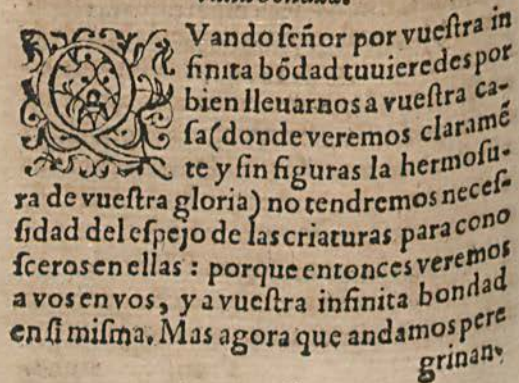 QVando señor por vuestra in
finita bõdad tuuieredes por
bien lleuarnos a vuestra ca-
sa (donde veremos claramẽ
te y sin figuras la hermosu-
ra de vuestra gloria) no tendremos neces-
sidad del espejo de las criaturas para cono
sceros en ellas : porque entonces veremos
a vos en vos, y a vuestra infinita bondad
en si misma. Mas agora que andamos pere
grinan-